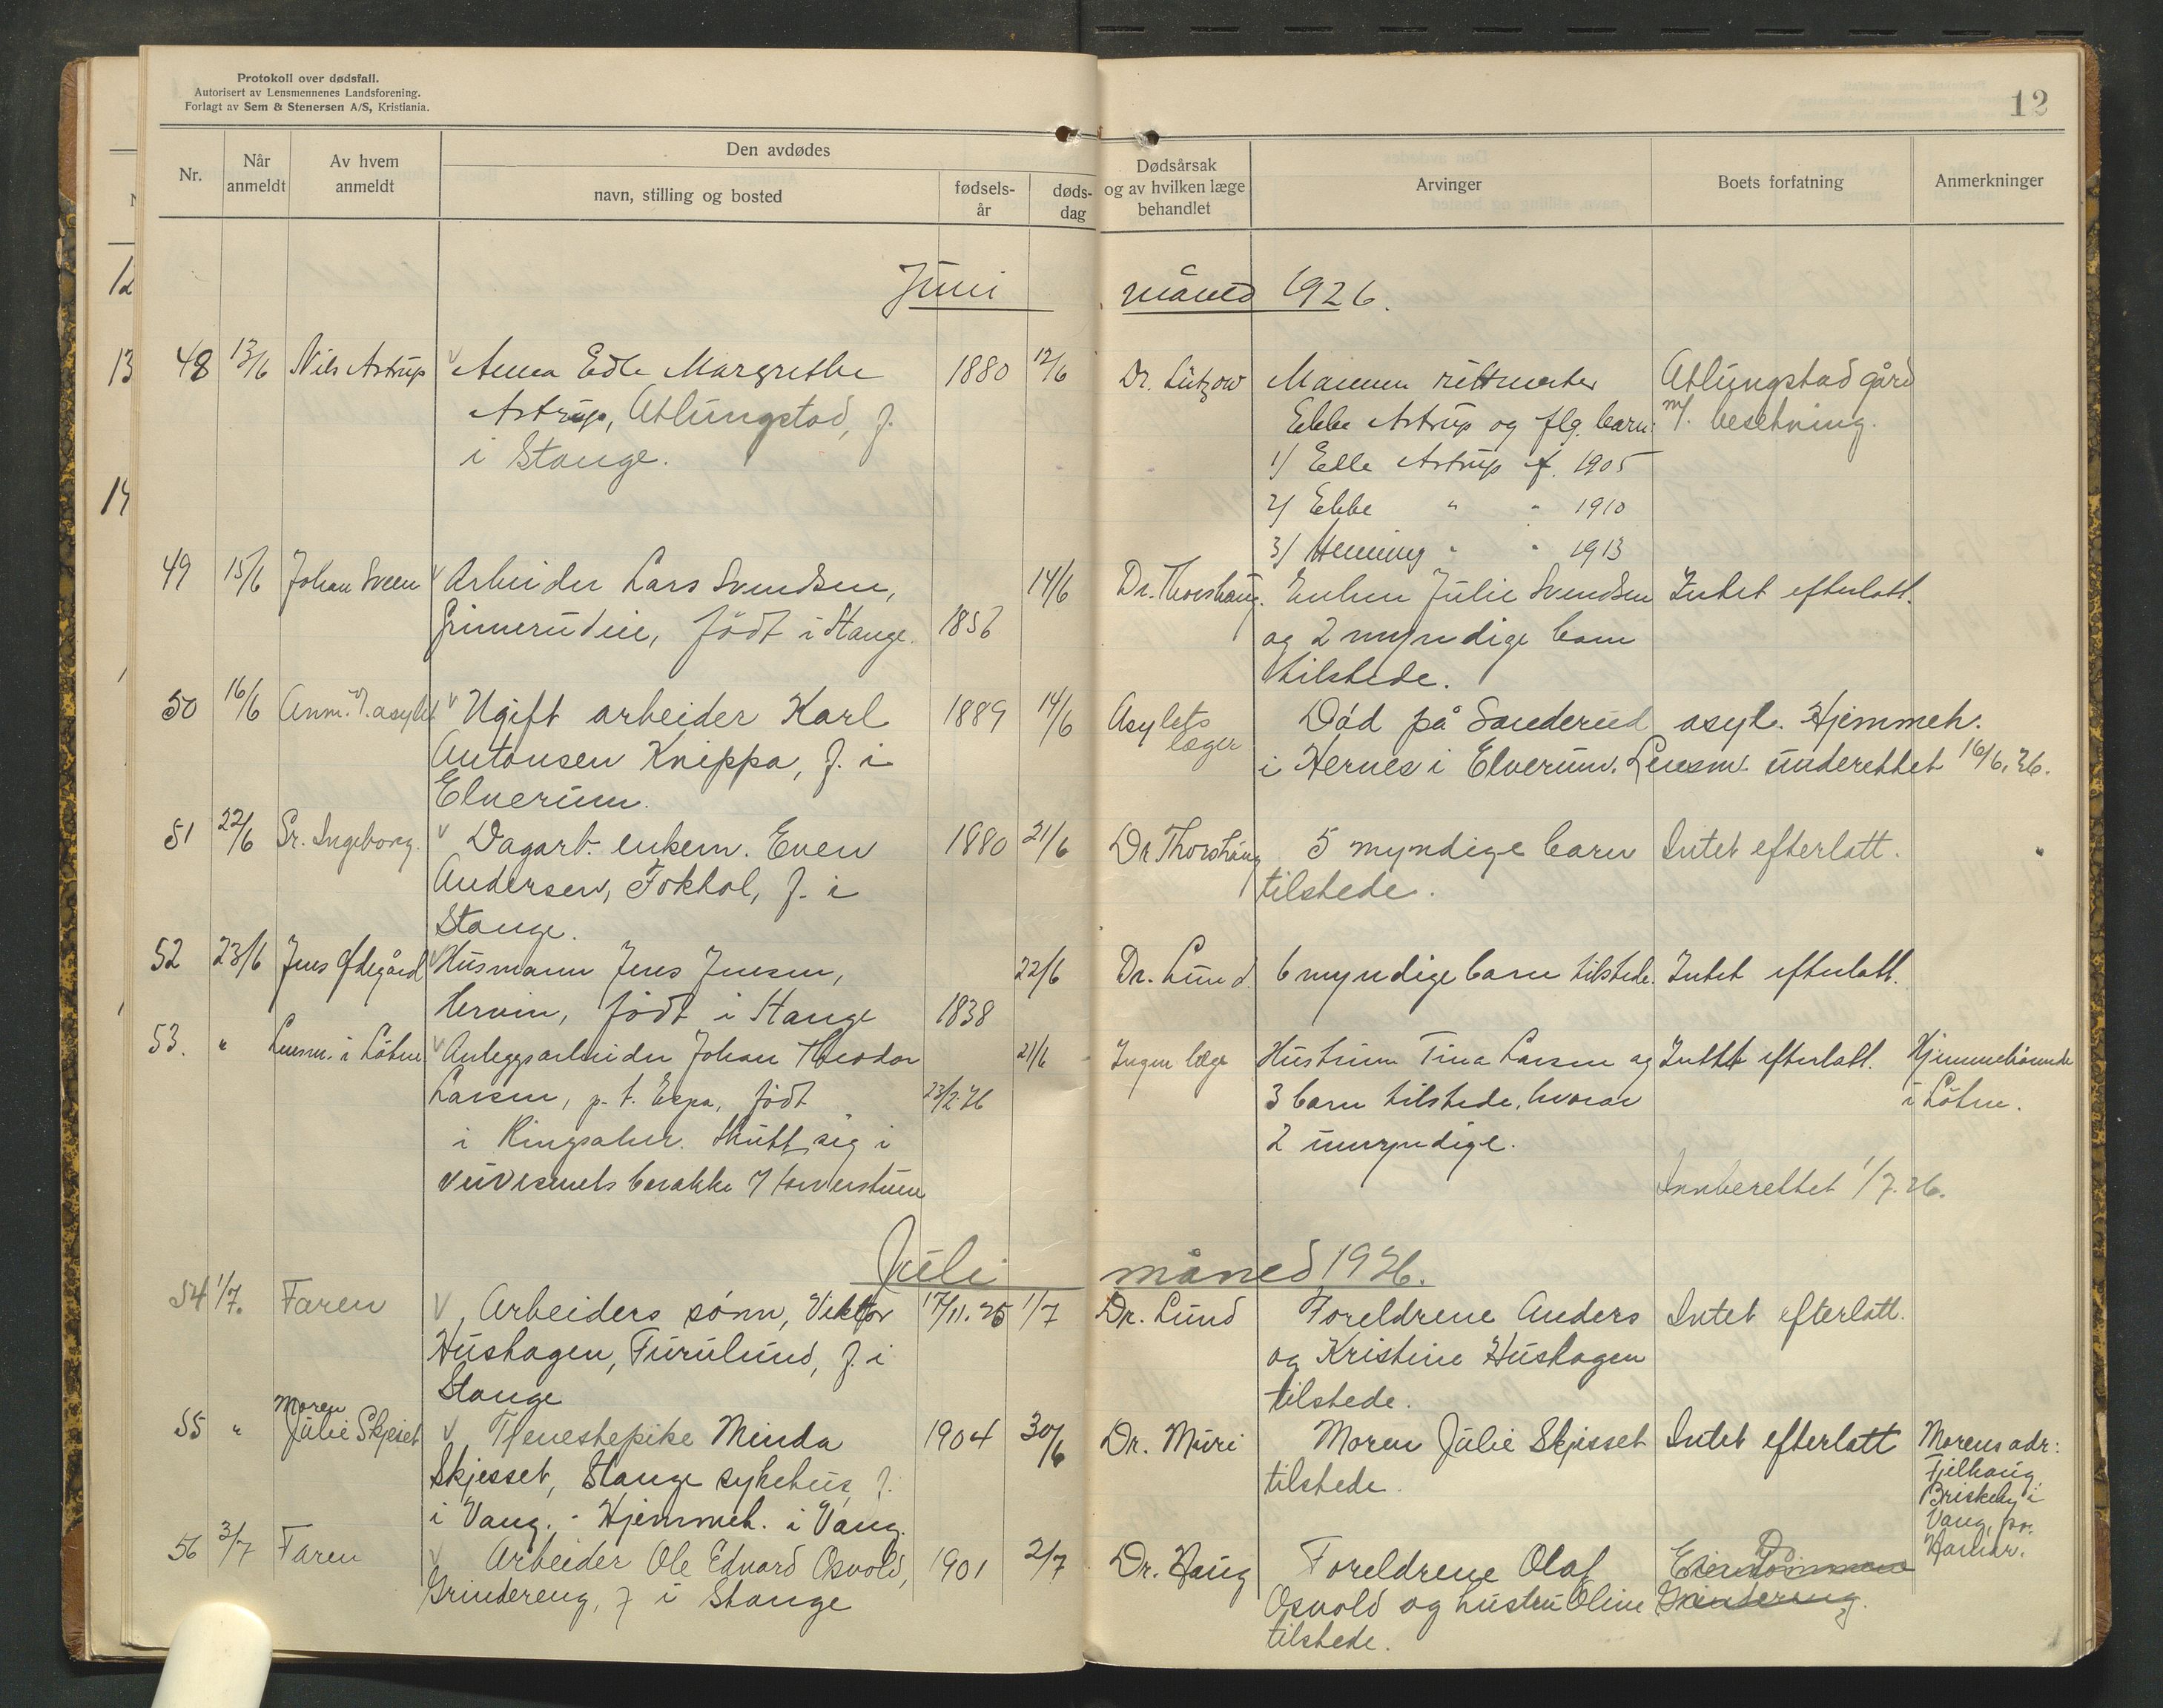 Protokoll over dødsfall.
Autorisert av Lensmennenes Landsforening.
Forlagt av Sem & Stenersen A/S, Kristiania.
12
Nr.
Når anmeldt
Av hvem anmeldt
Den avdødes
navn, stilling og bosted
fødsels-år
døds-dag
Dødsårsak og av hvilken læge behandlet
Arvinger
Boets forfatning
Anmerkninger
Juni måned 1926.
48 13/6 Nils Astrup Anna Edle Margrethe 1880 12/6 Dr. Lützow Mannen rittmester Atlungstad gård
Astrup, Atlungstad, f. Ebbe Astrup og flg. barn: m/. besetning.
i Stange. 1/ Edle Astrup f. 1905
2/ Ebbe " " 1910
3/ Henning " " 1913
49 15/6 Johan Sveen Arbeider Lars Svendsen, 14/6 Dr. Thorshaug. Enken Julie Svendsen Intet efterlatt.
Grimerudeie, født i Stange. 1856 og 2 myndige barn
tilstede.
50 16/6 Anm. v/. asylet Ugift arbeider Karl 1889 14/6 Asylets Død på Sanderud asyl. Hjemmeh.
Antonsen Knippa, f. i læger i Hernes i Elverum. Lensm. underettet 16/6. 26.
Elverum.
51 22/6 Sr. Ingeborg. Dagarb. enkem. Even 1880 21/6 Dr Thorshaug 5 myndige barn Intet efterlatt.
Andersen, Fokhol, f. i tilstede.
Stange.
52 23/6 Jens Ødegård Husmann Jens Jensen, 22/6 Dr. Lund. 6 myndige barn tilstede. Intet efterlatt.
født i Stange 1838
53. " Lensm. i Løten Anleggsarbeider Johan Theodor 21/6 Ingen læge Hustruen Tina Larsen og Intet efterlatt. Hjemmehørende
Larsen, p.t. Espa, født 23/2 76 3 barn tilstede, hvorav i Løten.
i Ringsaker. Skutt sig i 2 umyndige.
barakke
Innberettet 1/7. 26.
Juli måned 1926.
54 1/7. Faren Arbeiders sønn, Viktor 17/11. 25 1/7 Dr. Lund Foreldrene Anders Intet efterlatt.
Hushagen, Furulund, f. i og Kristine Hushagen
Stange tilstede.
55 " Moren Julie Skjeset Tjenestepike Minda 1904 30/6 Dr. Muri Moren Julie Skjesset Intet efterlatt Morens adr:
Skjesset, Stange sykehus, f. tilstede. Fjelhaug
i Vang. - Hjemmeh. i Vang. Briskeby i
Vang, pr.
Hamar.
56 3/7 Faren Arbeider Ole Edvard Osvold, 1901 2/7 Dr. Haug Foreldrene Olaf Eiendommen
Grindereng, f i Stange Osvold og hustru Oline Grindereng.
tilstede.